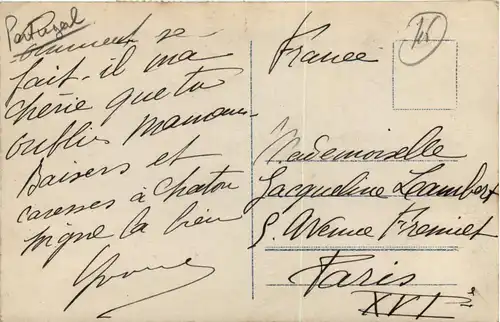 Portugal
Comment se
fait-il ma
chérie que tu
oublies maman
Baisers et
caresses à chaton
signe la bien
Yvonne
France
Mademoiselle
Jacqueline Lambert
5. Avenue Fremiet
Paris
XVIe